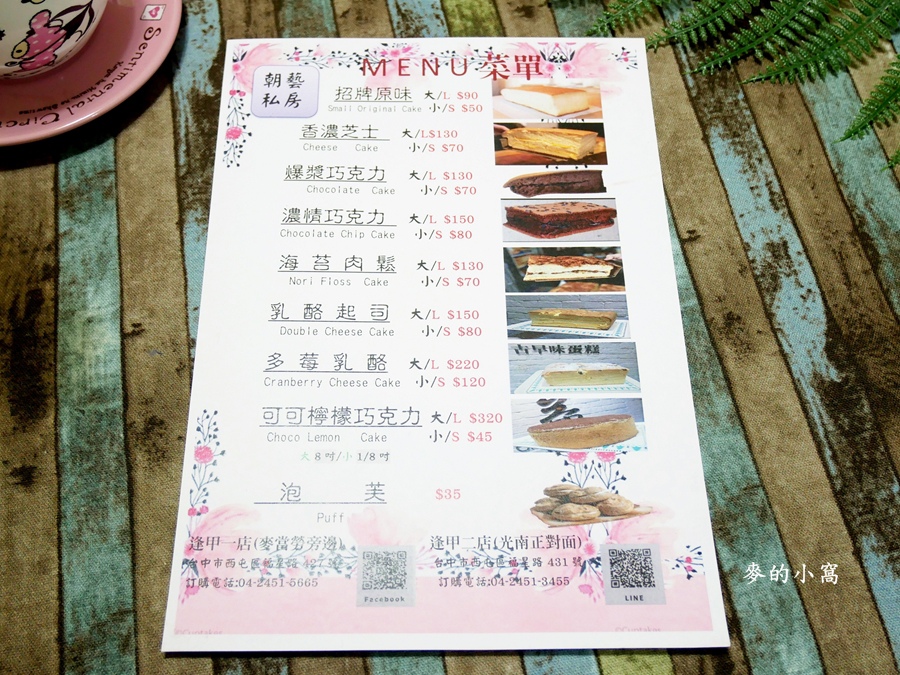 Sentimental Circus
MENU 菜單
朝藝
私房
招牌原味 大/L $90
Small Original Cake 小/S $50
香濃芝士 大/L$130
Cheese Cake 小/S $70
爆漿巧克力 大/L $130
Chocolate Cake 小/S $70
濃情巧克力 大/L $150
Chocolate Chip Cake 小/S $80
海苔肉鬆 大/L $130
Nori Floss Cake 小/S $70
乳酪起司 大/L $150
Double Cheese Cake 小/S $80
古早味蛋糕
多莓乳酪 大/L $220
Cranberry Cheese Cake 小/S $120
可可檸檬巧克力 大/L $320
Choco Lemon Cake 小/S $45
大 8 吋/小 1/8 吋
泡芙 $35
Puff
逢甲一店(麥當勞旁邊) 逢甲二店(光南正對面)
台中市西屯區福星路 427 號 台中市西屯區福星路 431 號
訂購電話:04-2451-5665 訂購電話:04-2451-3455
Facebook LINE
麥的小窩